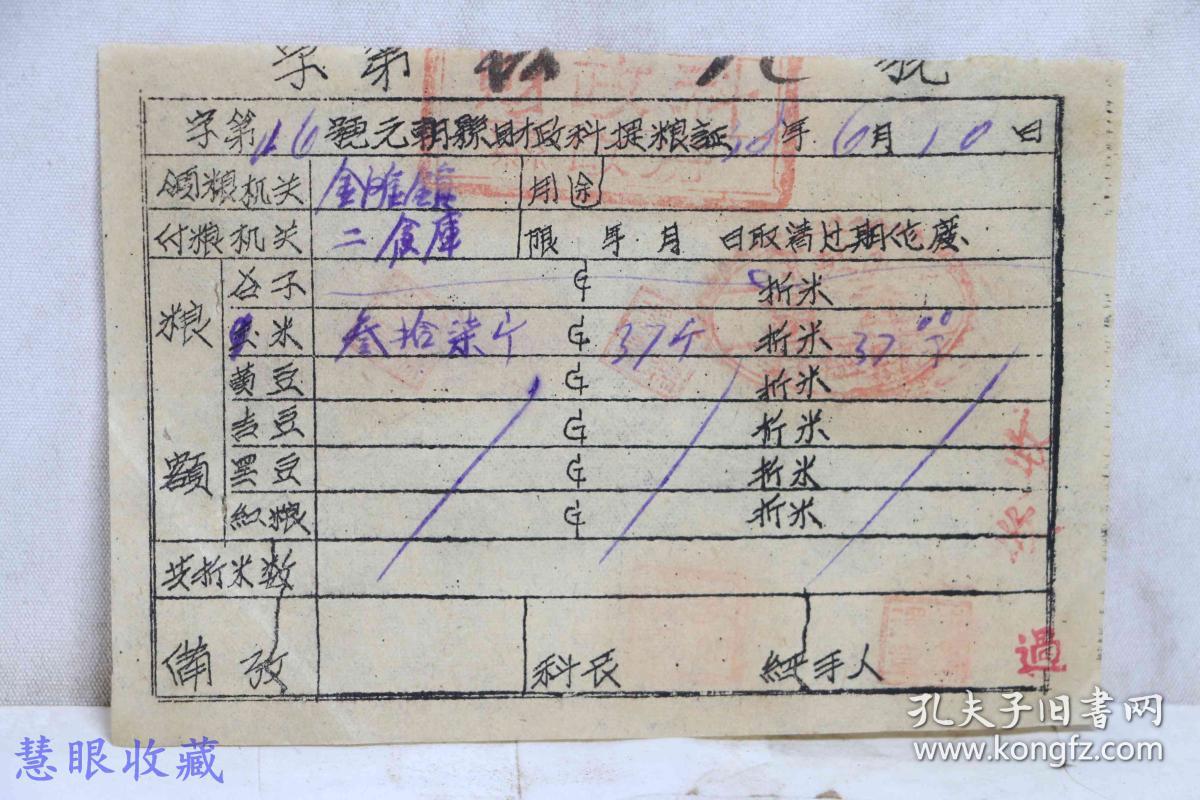 字第 號
字第16號元朝縣財政科提粮証38年6月10日
領粮机关 金滩鎮 用途
付粮机关 二倉庫 限 年 月 日取清过期作廢
粮額
谷子 折米
玉米 叁拾柒斤 37斤 折米 37斤
黄豆 折米
吉豆 折米
黑豆 折米
紅粮 折米
共折米数
備攷 科长 經手人
過
孔夫子旧书网
www.kongfz.com
慧眼收藏